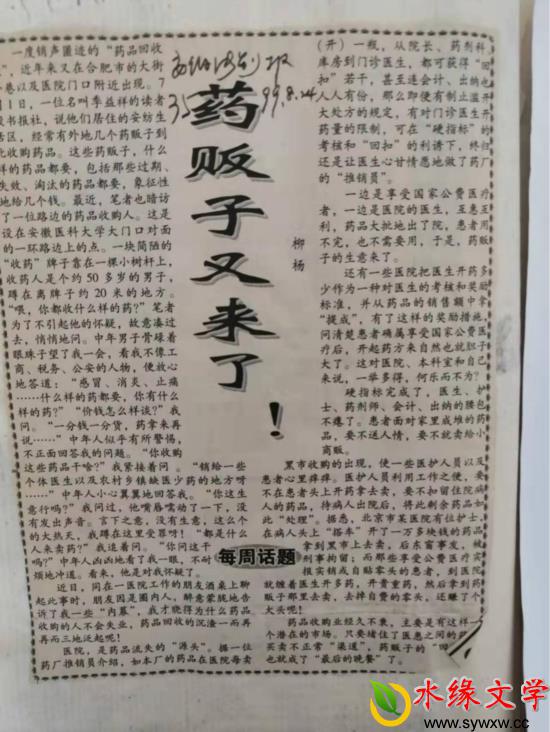 一度销声匿迹的“药品回收
”，近年来又在合肥市的大街
巷以及医院门口附近出现。7
月1日，一位名叫李益祥的读者
报书报社，说他们居住的安纺生
活区，经常有外地几个药贩子到
此收购药品。这些药贩子，什么
样的药品都要，包括那些过期、
失效、淘汰的药品都要，象征性
地给几个钱。最近，笔者也暗访
了一位路边的药品收购人。这是
设在安徽医科大学大门口对面
的一环路边上的点。一块简陋的
“收药”牌子靠在一棵小树杆上，
收药人是个约50多岁的男子，
蹲在离牌子约20米的地方。
“喂，你都收什么样的药?”笔者
为了不引起他的怀疑，故意凑过
去，悄悄地问。中年男子骨碌着
眼珠子望了我一会，看我不像工
商、税务、公安的人物，便放心
地答道：“感冒、消炎、止痛
……什么样的药都要，你有什么
样的药?”“价钱怎么样谈?”我
问。“一分钱一分货，药拿来再
说……”中年人似乎有所警惕，
不正面回答我的问题。“你收购
这些药品干啥?”我紧接着问。“销给一些
个体医生以及农村乡镇缺医少药的地方呀
……”中年人小心翼翼地回答我。“你这生
意行吗?”我问过，他嘴唇嚅动了一下，没
有发出声音。言下之意，没有生意，这么个
的大热天，我蹲在这里受罪呀!“都是什么
人来卖药?”我追着问。“你问这干
吗?”中年人凶凶地看了我一眼，不耐
烦地冲道。看来，他是对我怀疑了。
近日，同在一医院工作的朋友酒桌上聊
起此事时，朋友因是圈内人，醉意蒙胧地告
诉了我一些“内幕”，我才晓得为什么药品
收购的人不会失业，药品回收的沉渣一而再
再而三地泛起呢!
医院，是药品流失的“源头”。据一位
药厂推销员介绍，如本厂的药品在医院每卖
99.8.24
药贩子又来了！
柳杨
每周话题
（开）一瓶，从院长、药剂科
库房到门诊医生，都可获得“回
扣”若干，甚至连会计、出纳也
人人有份，那么即便有制止滥开
大处方的规定，有对门诊医生开
药量的限制，可在“硬指标”的
考核和“回扣”的利诱下，终归
还是让医生心甘情愿地做了药厂
的“推销员”。
一边是享受国家公费医疗
者，一边是医院的医生，互惠互
利，药品大批地出了院，患者用
不完，也不需要用，于是，药贩
子的生意来了。
还有一些医院把医生开药多
少作为一种对医生的考核和奖励
标准，并从药品的销售额中拿
“提成”，有了这样的奖励措施，
问清楚患者确属享受国家公费医
疗后，开起药方来自然也就胆子
大了。这对医院、本科室和自己
来说，一举多得，何乐而不为?
硬指标完成了，医生、护
士、药剂师、会计、出纳的腰包
不瘪了。患者面对家里成堆的药
品，要不送人情，要不就卖给小
商贩。
黑市收购的出现，使一些医护人员以及
患者心里痒痒。医护人员利用工作之便，要
不在患者头上开药拿去卖，要不扣留住院病
人的药品，待病人出院后，将此剩余药品如
此“处理”。据悉，北京市某医院有位护士，
在病人头上“搭车”开了一万多块钱的药品
拿到黑市上去卖，后东窗事发，被
刑事拘留；而那些享受公费医疗实
报实销或自贴零头的患者，到医院
就缠着医生开多药，开贵重药，然后拿到药
贩子那里去卖，去掉自费的零头，还赚了个
大头呢!
药品收购业经久不衰，主要是有这样一
个潜在的市场。只要堵住了医患之间的药
买卖不正常“渠道”，药贩子的“回
也就成了“最后的晚餐”了。
水缘文学
www.sywxw.cc